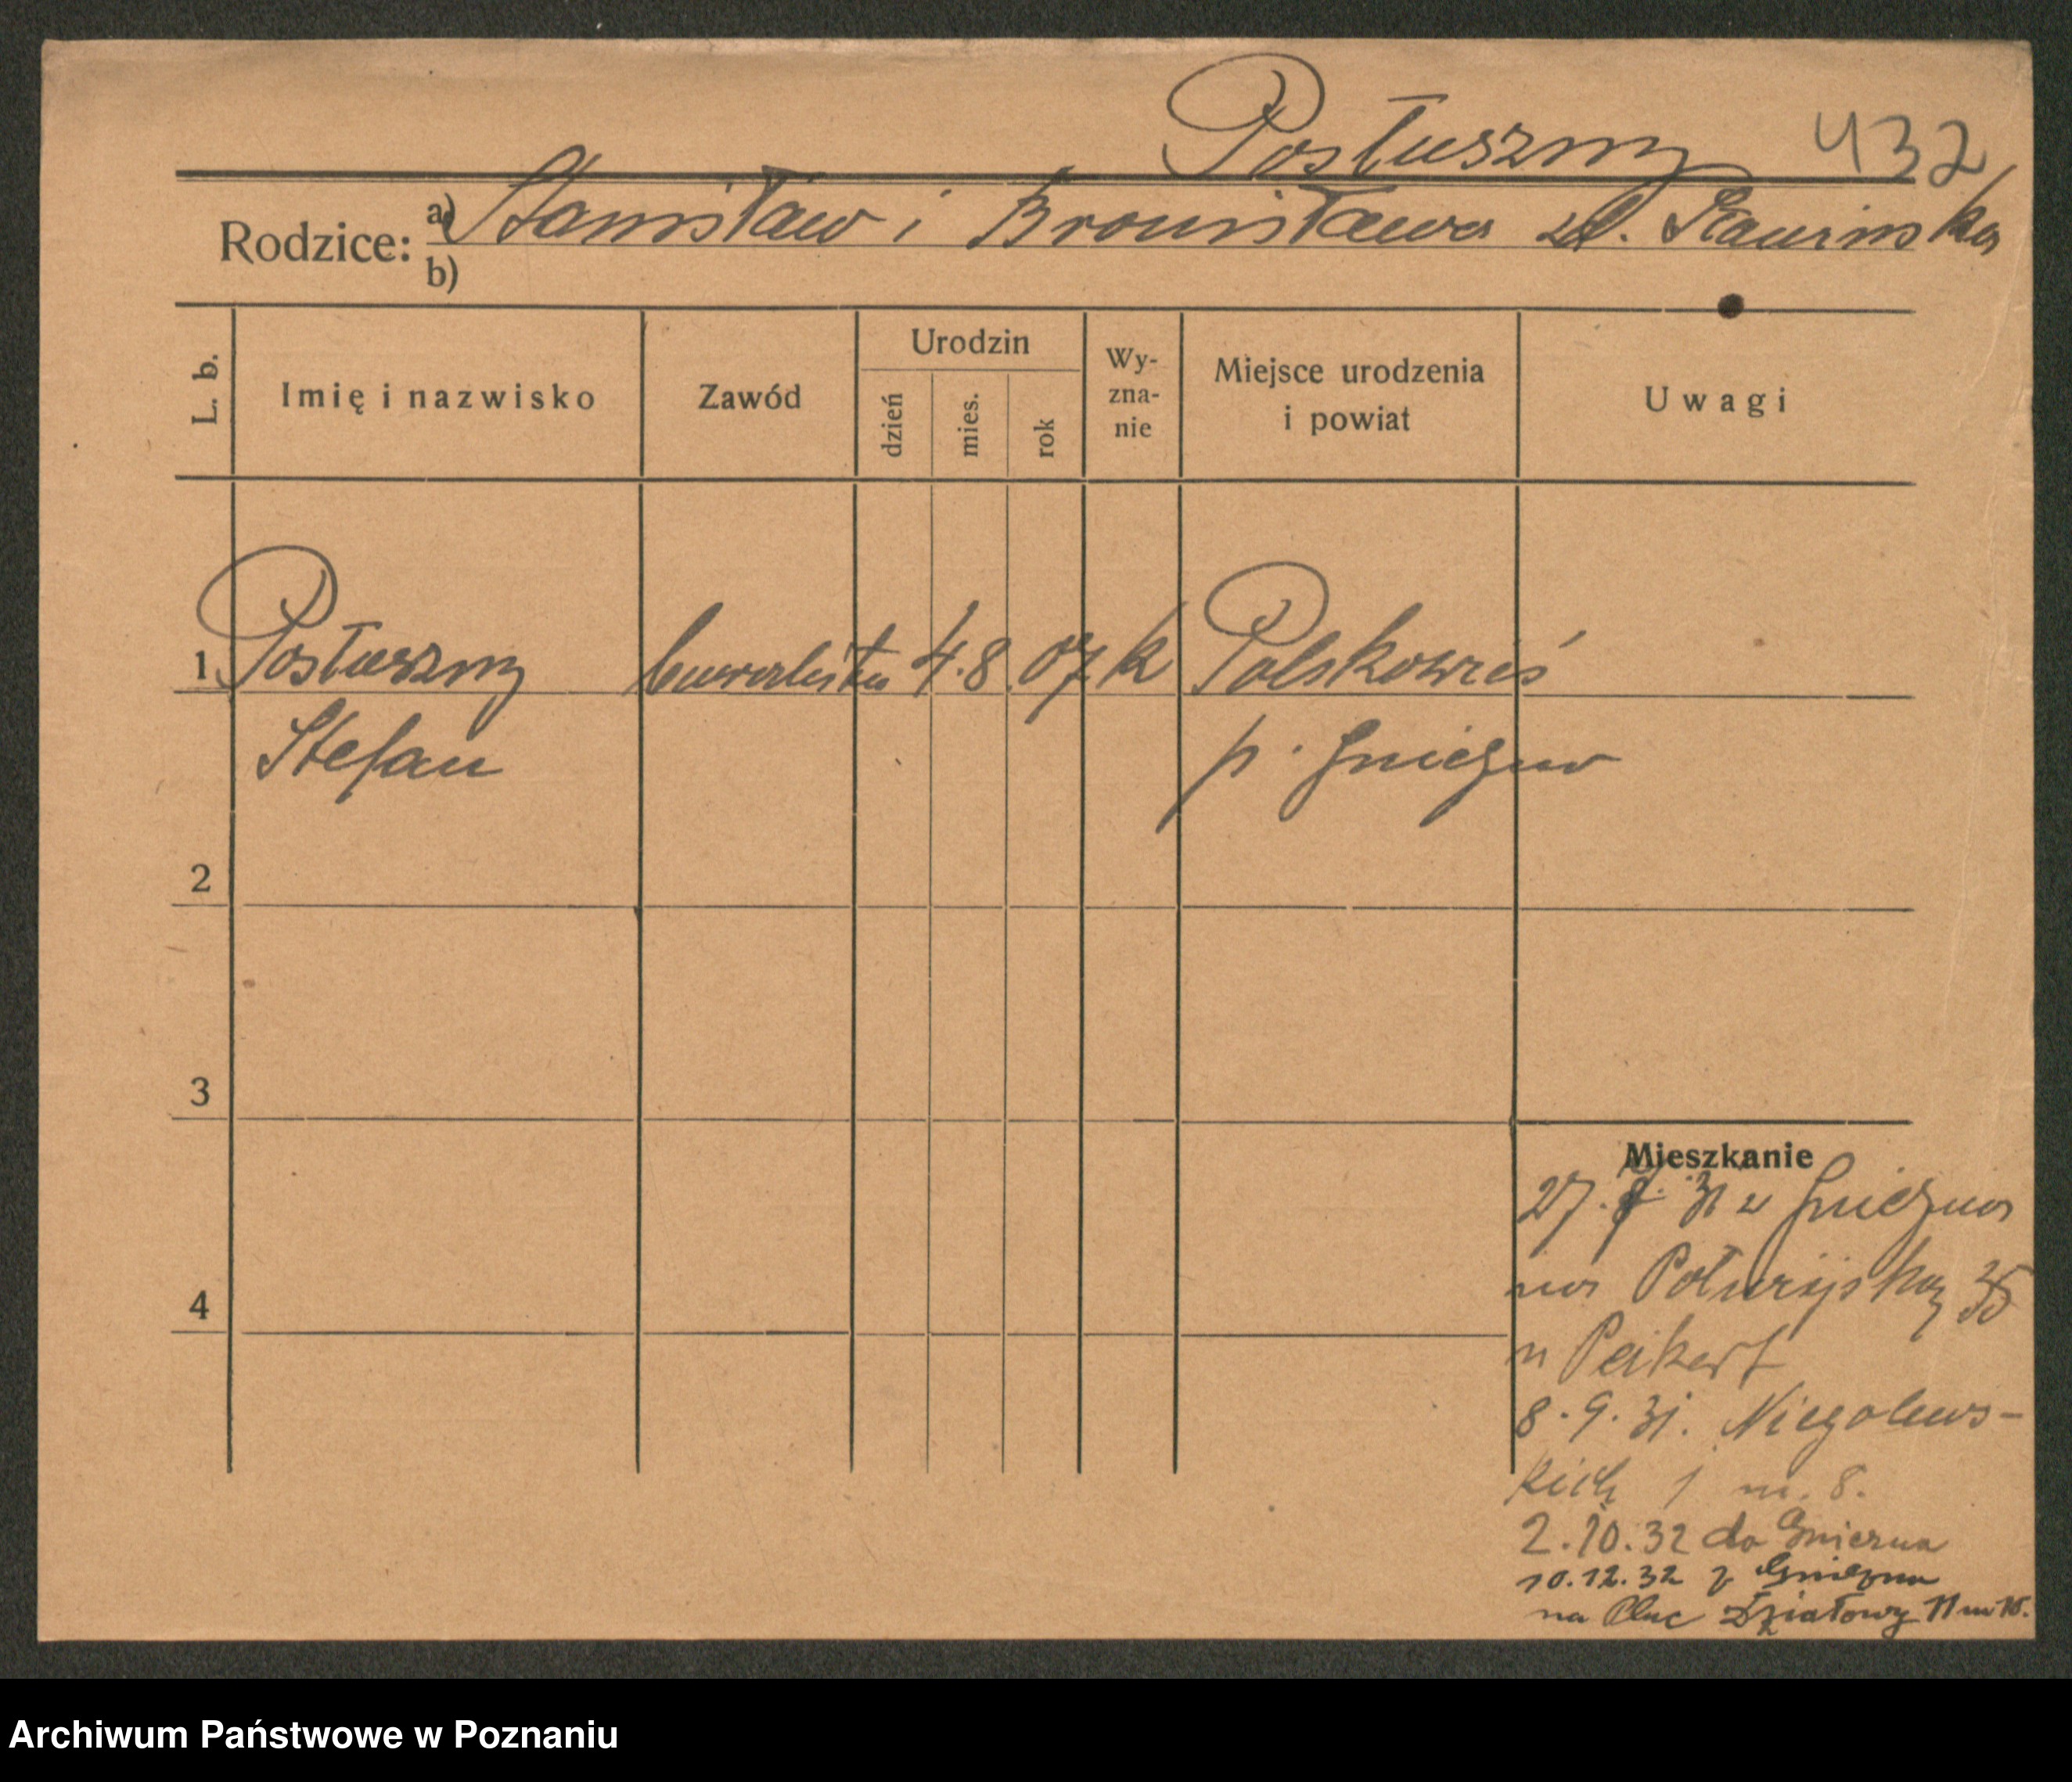 Posłuszny 432
Rodzice: a) Stanisław i Bronisława zd.
b)
L. b.
Imię i nazwisko
Zawód
Urodzin
dzień
mies.
rok
Wy-
zna-
nie
Miejsce urodzenia
i powiat
Uwagi
1 Posłuszny biuralista 4. 8. 07. k Polskawieś
Stefan p. Gniezno
2
3
4
Mieszkanie
27. 31 z Gniezna
na Półwiejską 35
u Peikert
8. 9. 31. Niegolews-
kich 1 m. 8.
2.10.32 do Gniezna
10.12.32 z Gniezna
na Plac Działowy 11 m
Archiwum Państwowe w Poznaniu